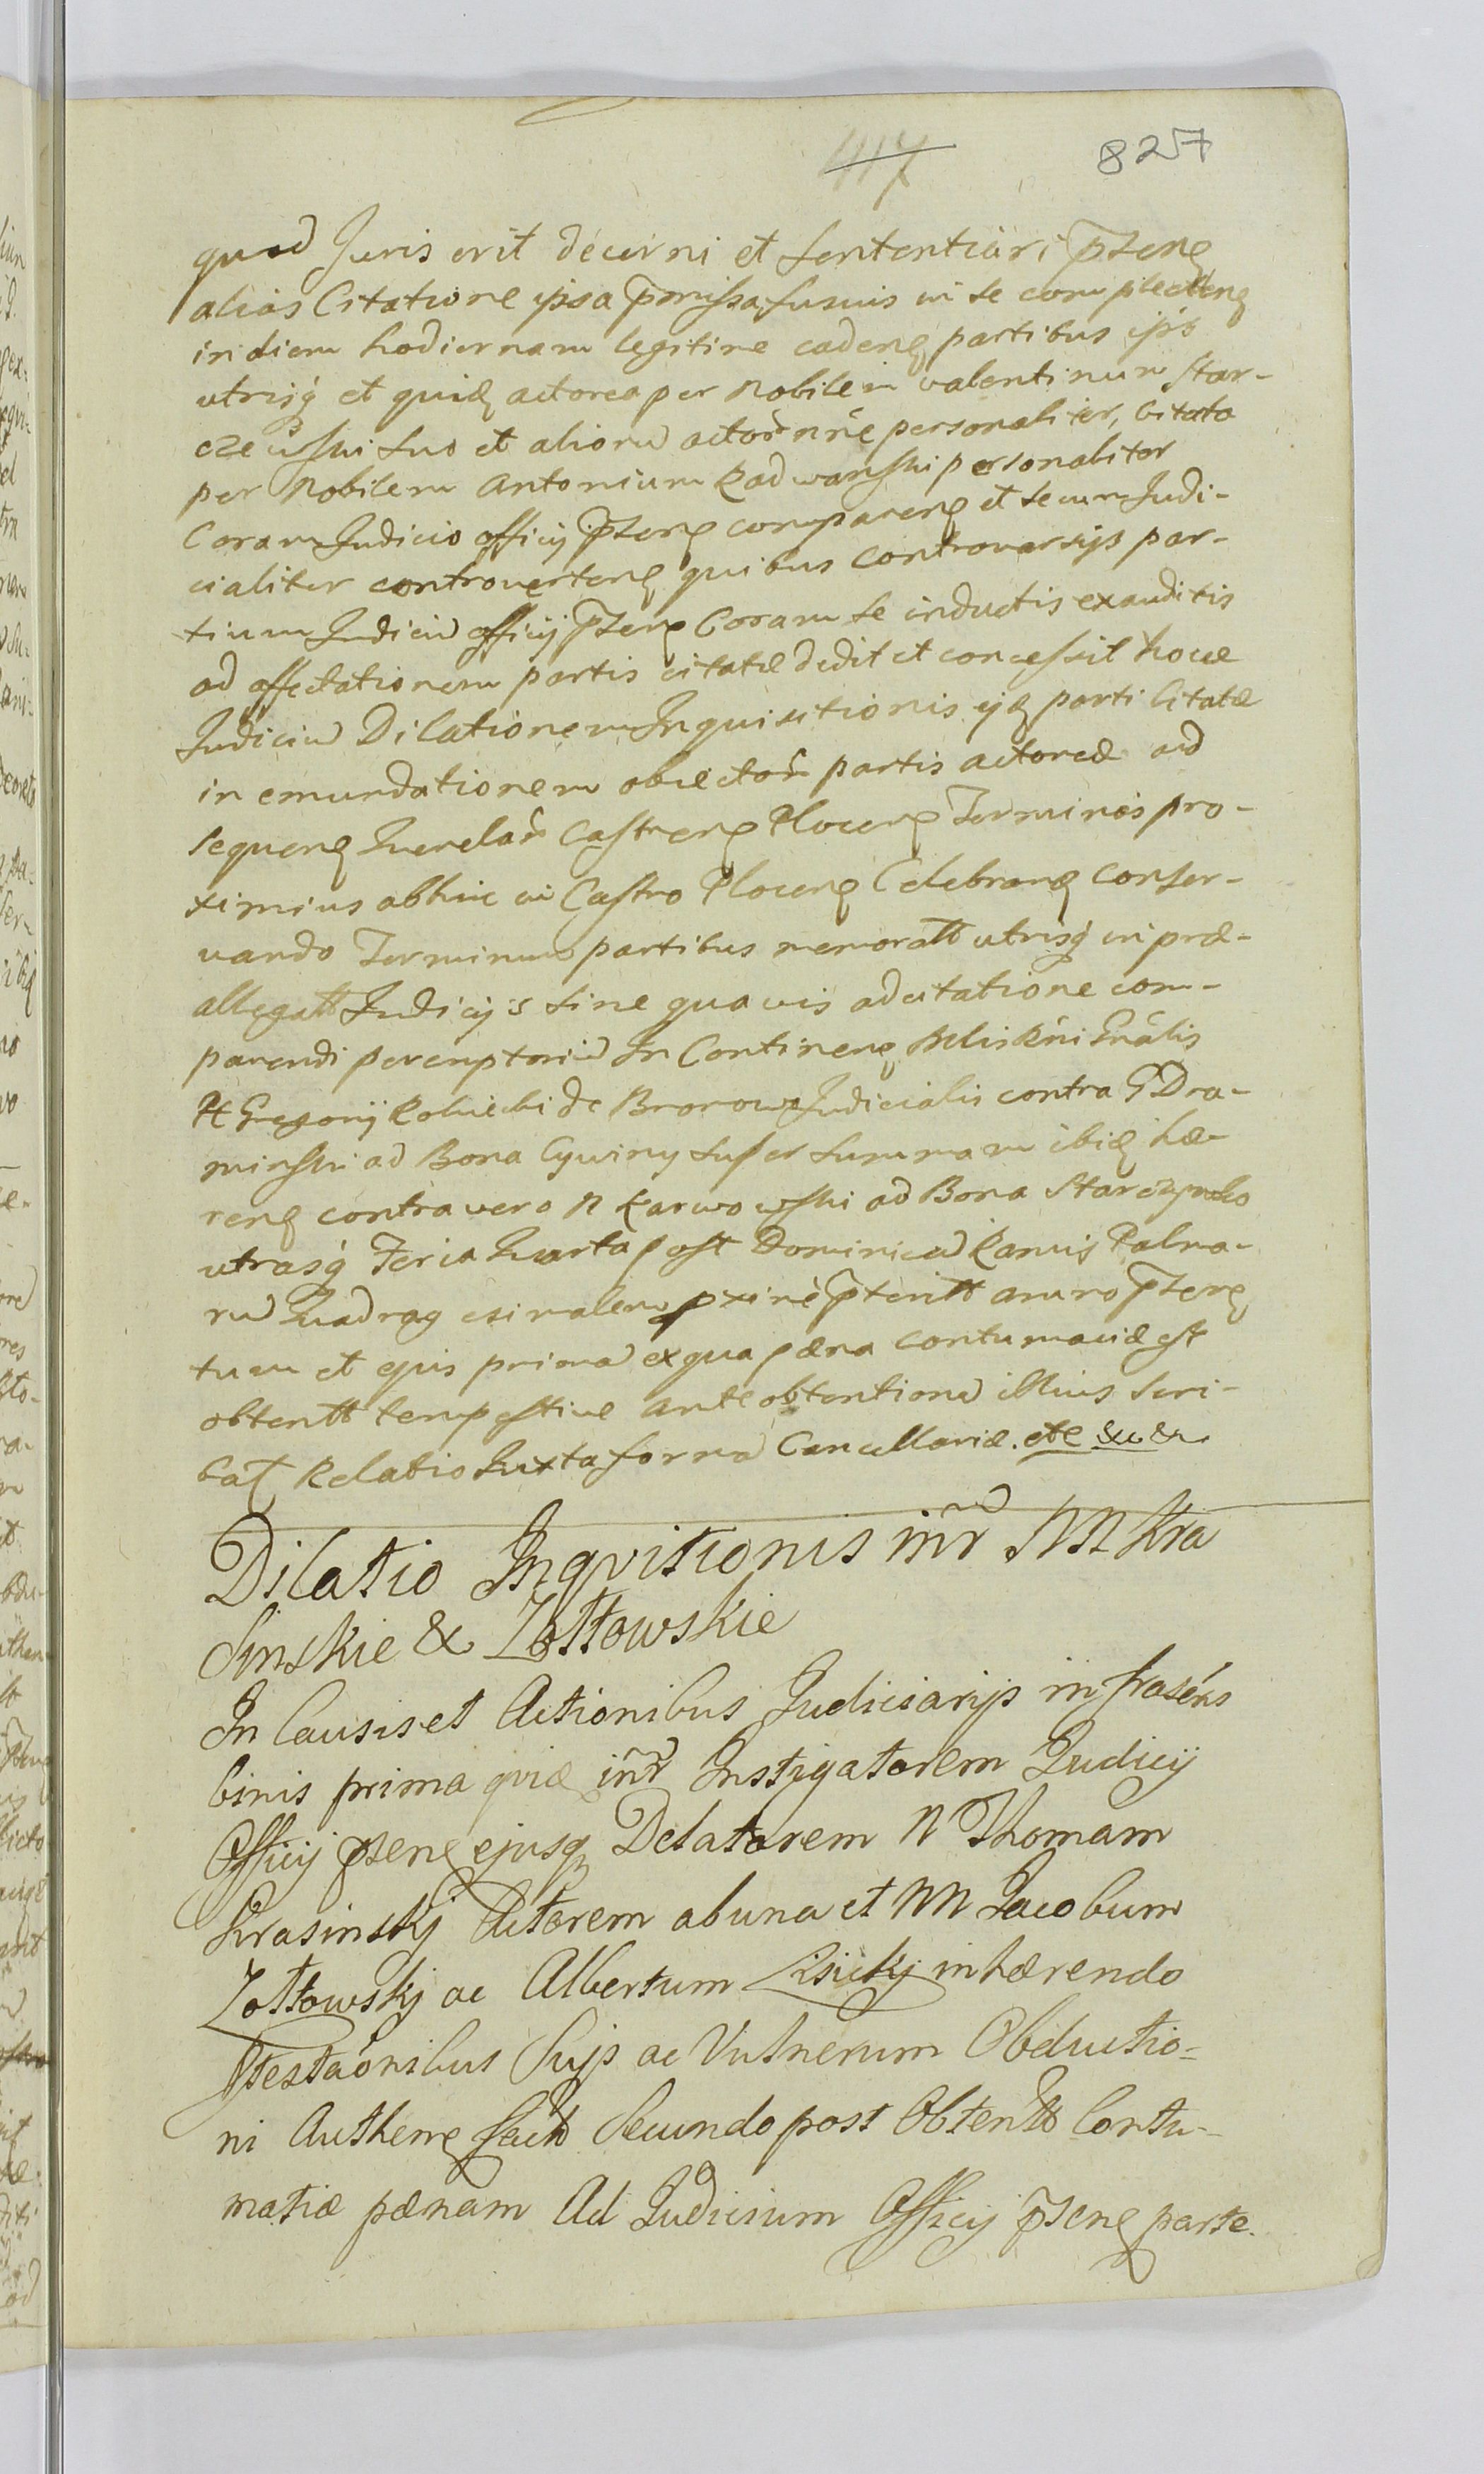 417 827
quod Juris erit decerni et sententiari p̃señ
alias Citatione ipsa p̃missa fusius in se complecteñ
in diem hodiernam legitime cadeñ partibus ip̃s
utrisq́ et quid actorea per Nobilem Valentinum Star-
czewski suo et aliorū actor̃ nr̃e personaliter, Citata
per Nobilem Antonium Radwanski personaliter
Coram Judicio officij p̃señ compareñ et secum Judi-
cialiter controverteñ quibus controversijs par-
tium Judiciū officij p̃señ Coram se inductis exauditis
ad affectationem partis citatæ dedit et concessit hocce
Judiciū Dilationem Inquisitionis ejd parti Citatæ
in emundationem obiector̃ partis actoreæ ad
sequeñ Querelar̃ Castreñ Ploceñ Terminos pro-
ximius abhinc in Castro Ploceñ Celebrañ conser-
vando Terminum partibus memoratt utrisq́ in præ-
allegatt Judicijs sine quavis adcitatione com-
parendi peremptoriū In Contineñ Mlis Rńi Gńalis
Gregorij de Judicialis contra G Dra-
minski ad Bona Cywiny super summam ibid hæ-
reñ contra vero N Karwowski ad Bona
utrasq́ Feria Quarta post Dominicā Ramis Palma-
rū Quadragesimalem p̃xime p̃teritt anno p̃señ
tum et ejus prima ex qua pæna contumaciæ est
obtentt tempestive ante obtentionē illius scri-
bat Relatio Juxta forma Cancellariæ. etc &c &c
Dilatio Inqvitionis inr̃ NN Kra
sinskie & Zołtowskie
In Causis et Actionibus Judiciarijs infrascŕis
binis prima qvid inr̃ Instigatorem Judicij
Officij p̃señ ejusq Delatorem N Thomam
Krasinskj Actorem ab una et NN Jacobum
Zołtowskj ac Albertum Lisickj inhærendo
p̃testaónibus suijs ac Vulnerum Obductio=
ni Autheñ Secundo post Obtentt Contu-
matiæ pænam Ad Judicium Officij p̃señ parte.